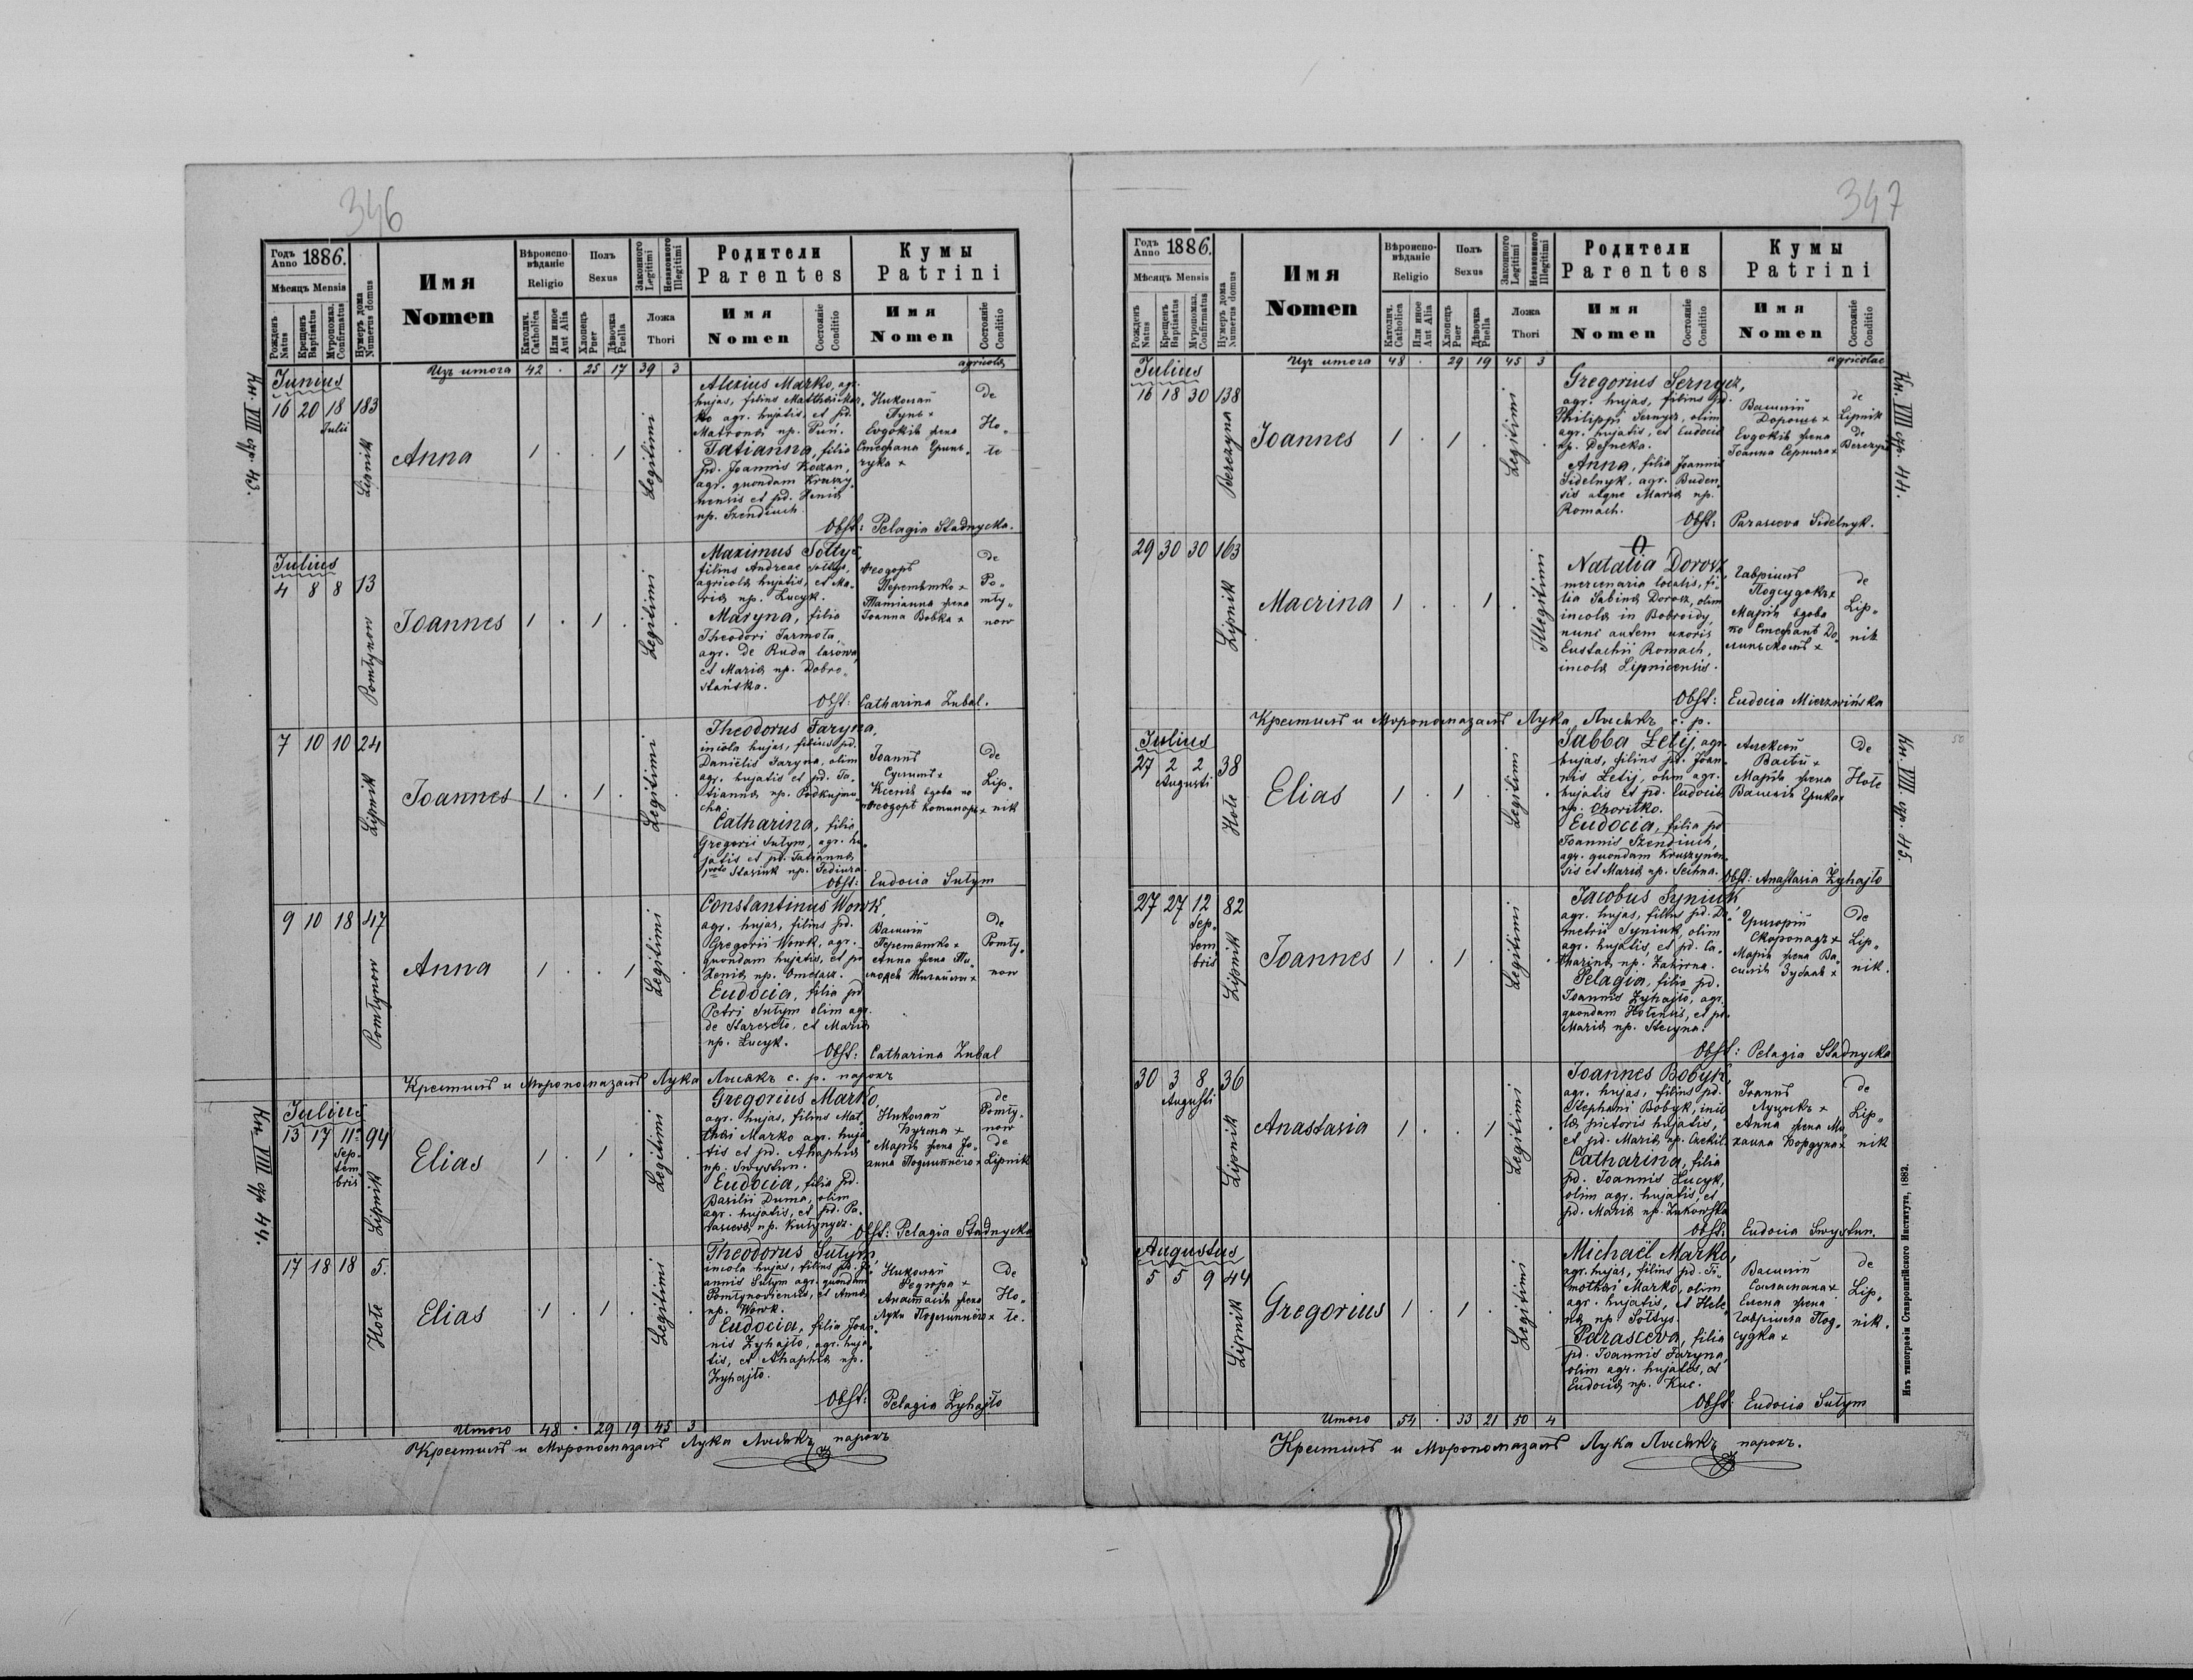 346
Кн. VIII стр. 43.
Годъ Anno 1886.
Мѣсяцъ Mensis
Рожденъ Natus
Крещенъ Baptisatus
Мѵропомаз. Confirmatus
Нумеръ дома Numerus domus
Имя
Nomen
Вѣроиспо-
вѣданіе
Religio
Католич. Catholica
Или иное Aut Alia
Полъ
Sexus
Хлопецъ Puer
Дѣвочка Puella
Законного Legitimi
Незаконного Illegitimi
Ложа
Thori
Родители
Parentes
Имя
Nomen
Состояніе Conditio
Кумы
Patrini
Имя
Nomen
Состояніе Conditio
Изъ итога 42 . 25 17 39 3
agricolae
Junius
16 20 18 183
Julii
Lipnik
Anna
1 . . 1
Legitimi
Alexius Marko, agr.
hujas, filius Matthaei Mar
ko agr. hujatis, et pd.
Matronae np. Puń.
Tatianna, filia
pd. Joannis Koczan,
agr. quondam Kruszy
nensis et pd. Xeniae
np. Szendiuch.
Николай
Пунь +
Евдокія жена
Стефана Гринь
чука +
de
Ho„
te
Obst: Pelagia Stadnycka.
Julius
4 8 8 13
Pomłynow
Joannes
1 . 1 .
Legitimi
Maximus Sołtys,
filius Andreae Sołtys,
agricolae hujatis, et Ma-
riae np. Łucyk.
Maryna, filia
Theodori Jarmoła,
agr. de Ruda lasowa,
et Mariae np. Dobro„
stańska.
Ѳеодоръ
Перетятко +
Татіанна жена
Іоанна Вовка +
de
Po„
mły„
now
Obst: Catharina Zubal.
7 10 10 24
Lipnik
Joannes
1 . 1 .
Legitimi
Theodorus Faryna,
incola hujas, filius pd.
Daniëlis Faryna, olim
agr. hujatis et pd. Ta-
tiannae np. Podkujmu
cha.
Catharina, filia
Gregorii Sutym, agr. hu„
jatis et pd. Tatiannae
1voto Stasiuk np. Fediura.
Іоаннъ
Сулимъ +
Ксенія вдова по
Ѳеодорѣ +
de
Lip„
nik
Obst: Eudocia Sutym
9 10 18 47
Pomłynow
Anna
1 . . 1
Legitimi
Constantinus Wowk,
agr. hujas, filius pd.
Gregorii Wowk, agr.
quondam hujatis, et pd.
Xeniae np. Ometasz.
Eudocia, filia pd.
Petri Sutym olim agr.
de Starzysto, et Mariae
np. Łucyk.
Василій
Перетятко +
Анна жена Ти„
моѳея +
de
Pomły„
now
Obst: Catharina Zubal
Крестилъ и Мѵропомазалъ Лука Лисякъ с. р. парохъ
Кн. VIII стр. 44.
Julius
13 17 11. 94
Sep-
tem
bris
Lipnik
Elias
1 . 1 .
Legitimi
Gregorius Marko,
agr. hujas, filius Mat„
thaei Marko agr. huja
tis et pd. Ahaphiae
np. Swystun.
Eudocia, filia pd.
Basilii Duma, olim
agr. hujatis, et pd. Pa
rascevae np. Kutynycz.
Николай
+
Марія жена Іо„
анна +
de
Pomły„
now
de
Lipnik
Obst: Pelagia Stadnycka
17 18 18 5.
Hołe
Elias
1 . 1 .
Legitimi
Theodorus Sutym,
incola hujas, filius pd. Jo„
annis Sutym agr. quondam
Pomłynoviensis, et Annae
np. Wowk.
Eudocia, filia Joan„
nis Zyhajło, agr. huja„
tis, et Ahaphiae np.
Zyhajło.
Николай
Федюра +
Анастасія жена
Луки +
de
Ho„
łe.
Obst: Pelagia Zyhajło
Итого 48 . 29 19 45 3
Крестилъ и Мѵропомазалъ Лука Лисякъ парохъ
347
Кн. VIII стр. 44.
Годъ Anno 1886.
Мѣсяцъ Mensis
Рожденъ Natus
Крещенъ Baptisatus
Мѵропомаз. Confirmatus
Нумеръ дома Numerus domus
Имя
Nomen
Вѣроиспо-
вѣданіе
Religio
Католич. Catholica
Или иное Aut Alia
Полъ
Sexus
Хлопецъ Puer
Дѣвочка Puella
Законного Legitimi
Незаконного Illegitimi
Ложа
Thori
Родители
Parentes
Имя
Nomen
Состояніе Conditio
Кумы
Patrini
Имя
Nomen
Состояніе Conditio
Изъ итога 48 . 29 19 45 3
agricolae
Julius
16 18 30 138
Berezyna
Joannes
1 . 1 .
Legitimi
Gregorius Sernycz,
agr. hujas, filius pd.
Philippi Sernycz, olim
agr. hujatis, et Eudociae
np. Dejneka.
Anna, filia Joannis
Sidelnyk, agr. Buden„
sis atque Mariae np.
Romach.
Василій
Дорошъ +
Евдокія жена
Іоанна Сернича +
de
Lipnik
de
Berezyna
Obst: Parasceva Sidelnyk.
29 30 30 163
Lipnik
Macrina
1 . . 1 .
Illegitimi
Natalia Dorosz,
mercenaria localis, fi„
lia Sabinae Dorosz, olim
incolae in Bobroidy,
nunc autem uxoris
Eustachii Romach,
incolae Lipnicensis.
Гавріилъ
Подсудокъ +
Марія вдова
по Стефанѣ До„
+
de
Lip„
nik
Obst: Eudocia Mierzwińska
Крестилъ и Мѵропомазалъ Лука Лисякъ с. р.
Кн. VIII. стр. 45.
50
Julius
27 2 2 38
Augusti
Hołe
Elias
1 . 1 .
Legitimi
Sabba Łetij, agr.
hujas, filius pd. Joan„
nis Łetij, olim agr.
hujatis et pd. Eudociae
np. Choritko.
Eudocia, filia pd.
Joannis Szendiuch,
agr. quondam Kruszynen„
sis et Mariae np. Seihna.
Алексій
+
Марія жена
Василія +
de
Hołe
Obst: Anastasia Zyhajło
27 27 12 82
Sep„
tem
bris
Lipnik
Joannes
1 . 1 .
Legitimi
Jacobus Syniuk,
agr. hujas, filius pd. De„
metrii Syniuk, olim
agr. hujatis, et pd. Ca„
tharinae np. Zahirna.
Pelagia, filia pd.
Joannis Zyhajło, agr.
quondam Hołensis, et pd.
Mariae np. Stecyna.
Григорій
Скоропадъ +
Марія жена Ва„
силія Зубаля +
de
Lip„
nik.
Obst: Pelagia Stadnycka
30 3 8 36
Augusti
Lipnik
Anastasia
1 . . 1 .
Legitimi
Joannes Bobyk,
agr. hujas, filius pd.
Stephani Bobyk, inco
lae pictoris hujatis,
et pd. Mariae np.
Catharina, filia
pd. Joannis Łucyk,
olim agr. hujatis, et
pd. Mariae np. Zukowska
Іоаннъ
Луцикъ +
Анна жена Ми
хаила +
de
Lip„
nik
Obst: Eudocia Swystun.
Augustus
5 5 9 44
Lipnik
Gregorius
1 . 1 .
Legitimi
Michaël Marko,
agr. hujas, filius pd. Ti„
mothei Marko, olim
agr. hujatis, et Hele„
nae np Sołtys.
Parasceva, filia
pd. Joannis Faryna,
olim agr. hujatis, et
Eudociae np. Kuc.
Василій
+
Елена жена
Гавріила Под„
судка +
de
Lip„
nik.
Obst: Eudocia Sutym
Итого 54 . 33 21 50 4
Крестилъ и Мѵропомазалъ Лука Лисякъ парохъ.
Изъ типографіи Ставропигійского Института, 1882.